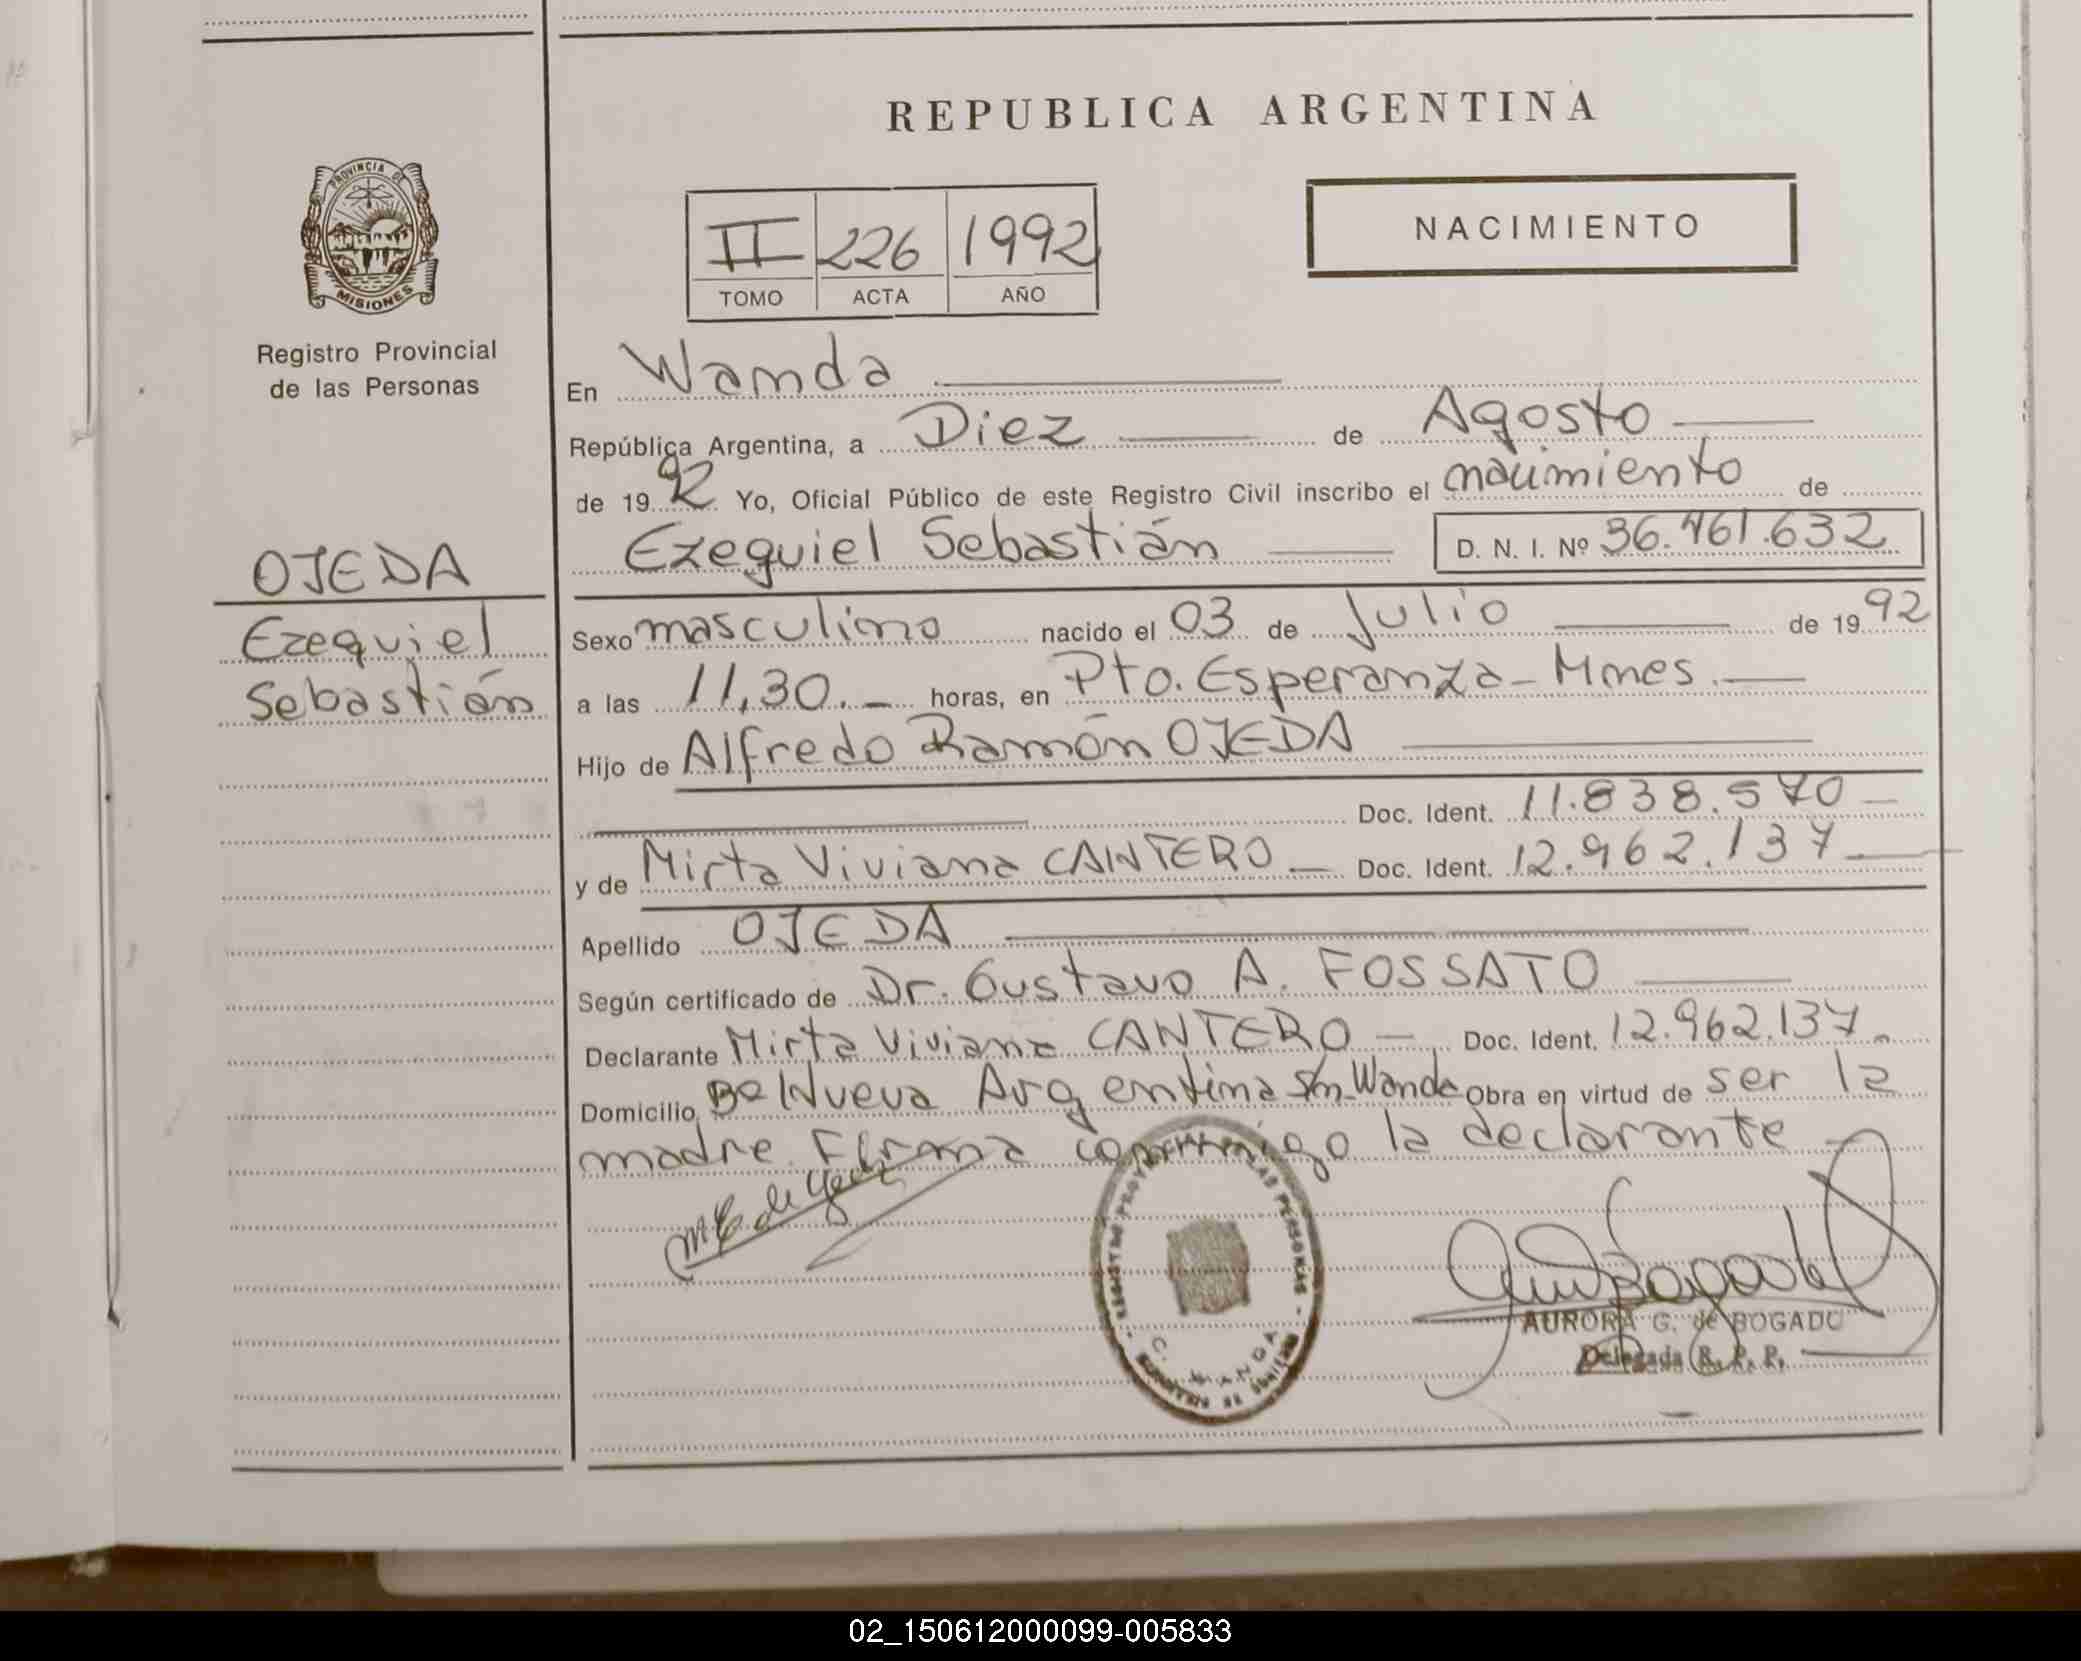 REPUBLICA ARGENTINA
PROVINCIA DE
MISIONES
Registro Provincial
de las Personas
II 226 1992
TOMO ACTA AÑO
NACIMIENTO
En Wanda
República Argentina, a Diez de Agosto
de 1992 Yo, Oficial Público de este Registro Civil inscribo el nacimiento de
Ezequiel Sebastián D. N. I. Nº 36.461.632
OJEDA
Ezequiel
Sebastián
Sexo masculino nacido el 03 de Julio de 1992
a las 11,30.- horas, en Pto. Esperanza - Mnes.
Hijo de Alfredo Ramón OJEDA
Doc. Ident. 11.838.570
y de Mirta Viviana CANTERO Doc. Ident. 12.962.137
Apellido OJEDA
Según certificado de Dr. Gustavo A. FOSSATO
Declarante Mirta Viviana CANTERO - Doc. Ident. 12.962.137
Domicilio Bº Nueva Argentina s/n-Wanda Obra en virtud de ser la
madre. Firma conmigo la declarante
REGISTRO PROVINCIAL DE LAS PERSONAS
WANDA
AURORA G. de BOGADO
Delegada R. P. P.
02_150612000099-005833